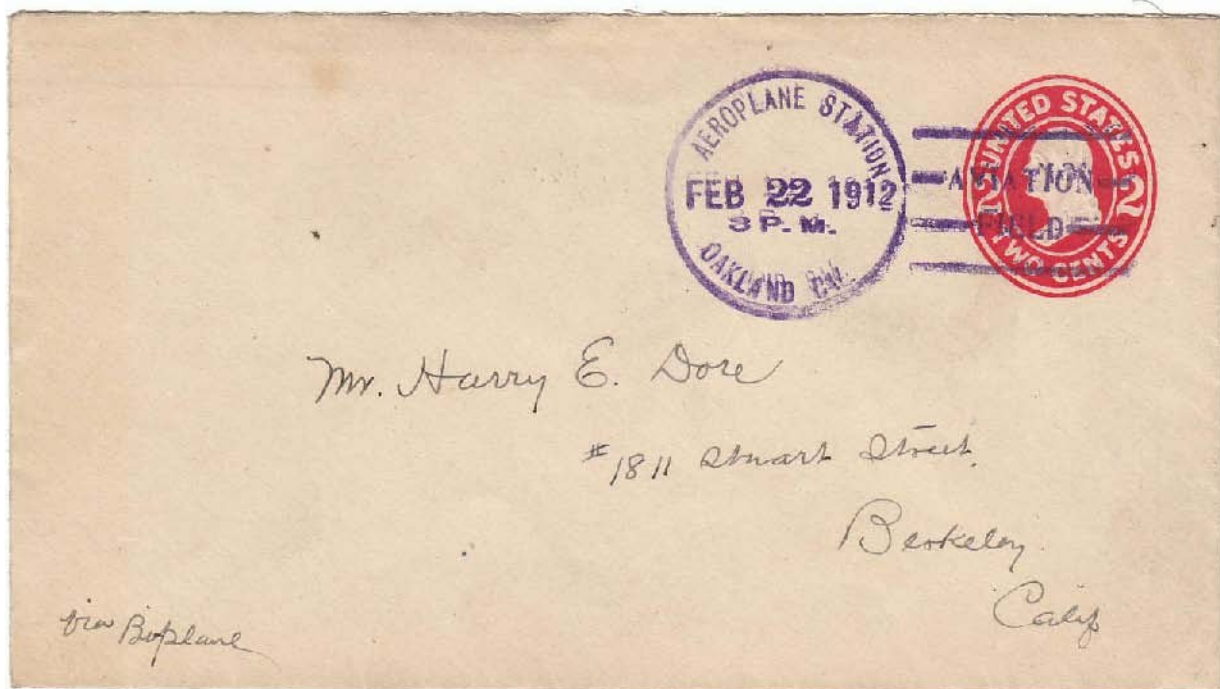 AEROPLANE STATION
FEB 22 1912
3 P. M.
OAKLAND CAL.
AVIATION
FIELD
UNITED STATES
2 2
TWO CENTS
Mr. Harry E. Dore
#1811 Stuart Street,
Berkeley
Calif
via Biplane